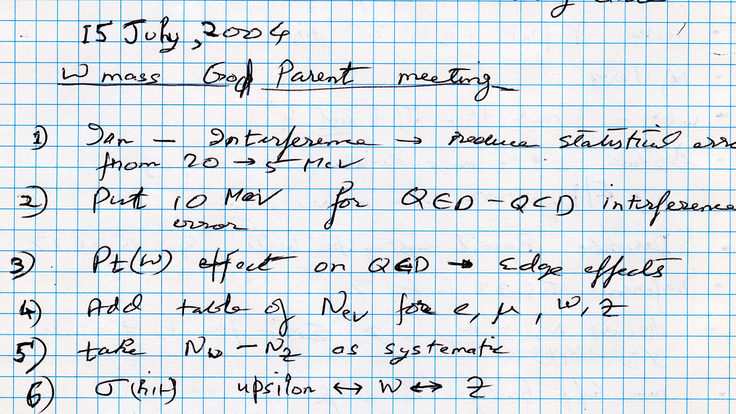 15 July, 2004
W mass God Parent meeting
1) Ian – Interference → reduce statistical erro
from 20 → 5 MeV
2) Put 10 MeV for QED – QCD interference
error
3) Pt(W) effect on QED → Edge effects
4) Add table of Nev for e, μ, W, Z
5) take Nw – Nz as systematic
6) σ(hit) upsilon ↔ W ↔ Z